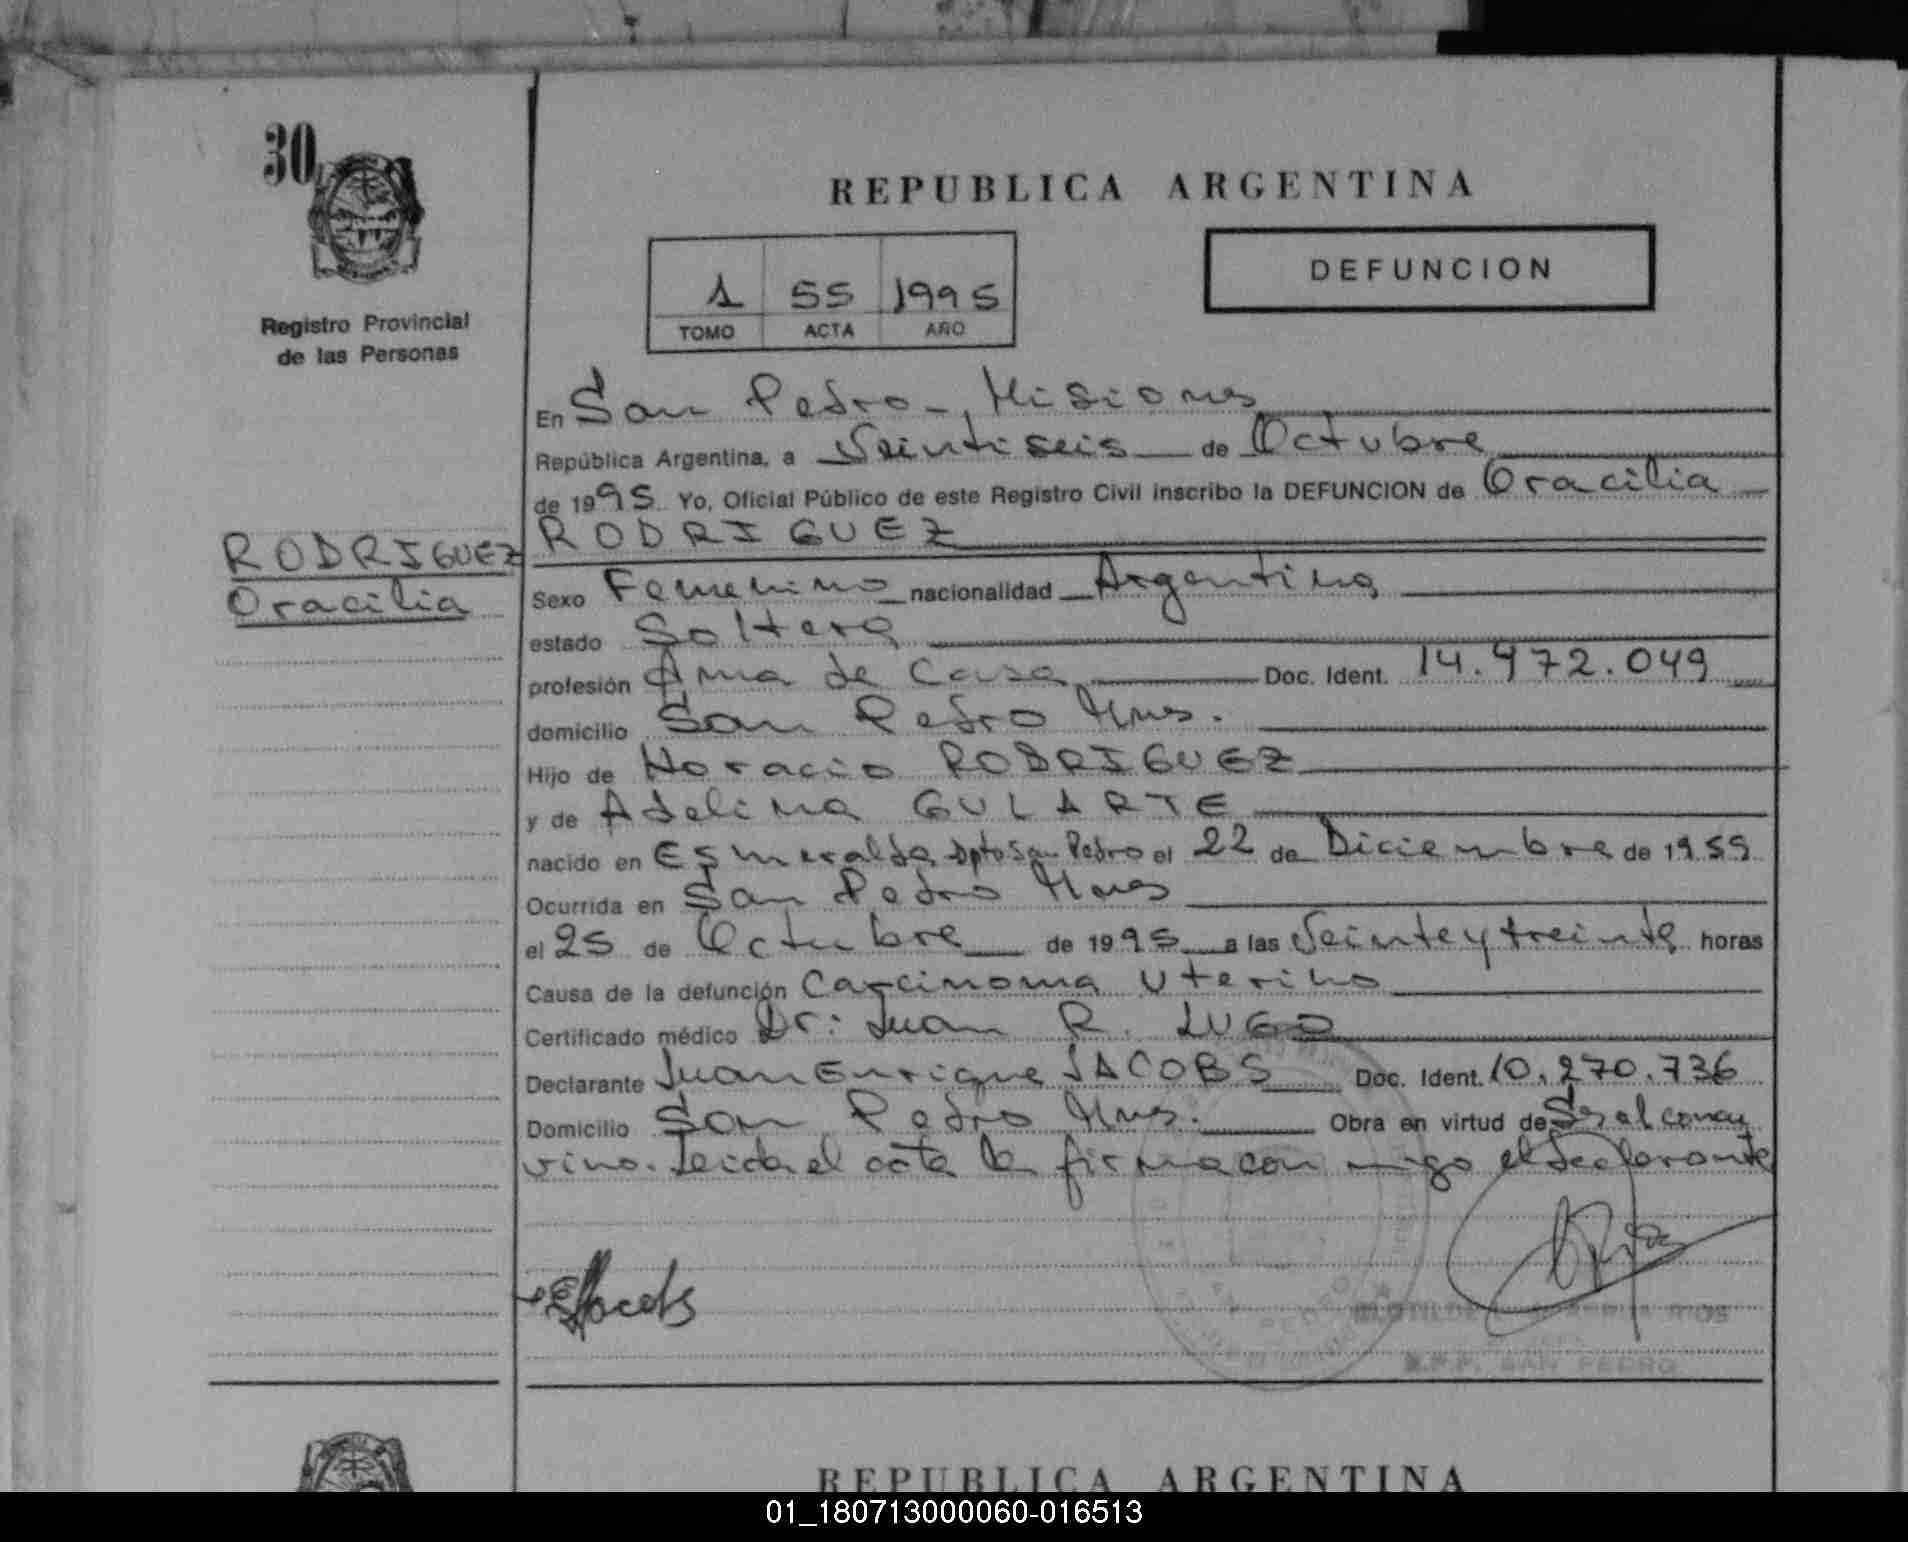 30
REPUBLICA ARGENTINA
DEFUNCION
1 55 1995
TOMO ACTA AÑO
Registro Provincial
de las Personas
RODRIGUEZ
Oracilia
En San Pedro-, Misiones
República Argentina, a Veintiseis de Octubre
de 1995 Yo, Oficial Público de este Registro Civil inscribo la DEFUNCION de Oracilia
RODRIGUEZ
Sexo Femenino nacionalidad Argentina
estado Soltera
profesión Ama de Casa Doc. Ident. 14.972.049
domicilio San Pedro Mnes.
Hijo de Horacio RODRIGUEZ
y de Adelina GULARTE
nacido en Esmeralda Dpto San Pedro el 22 de Diciembre de 1959
Ocurrida en San Pedro Mnes
el 25 de Octubre de 1995 a las Veinte y treinta horas
Causa de la defunción Carcinoma Uterino
Certificado médico Dr: Juan R. LUGO
Declarante Juan Enrique JACOBS Doc. Ident. 10.270.736
Domicilio San Pedro Mnes. Obra en virtud de Ser el concu
vino. Leida el acta la firma con migo el declarante
Jacobs
RIOS
SAN PEDRO
REPUBLICA ARGENTINA
01_180713000060-016513